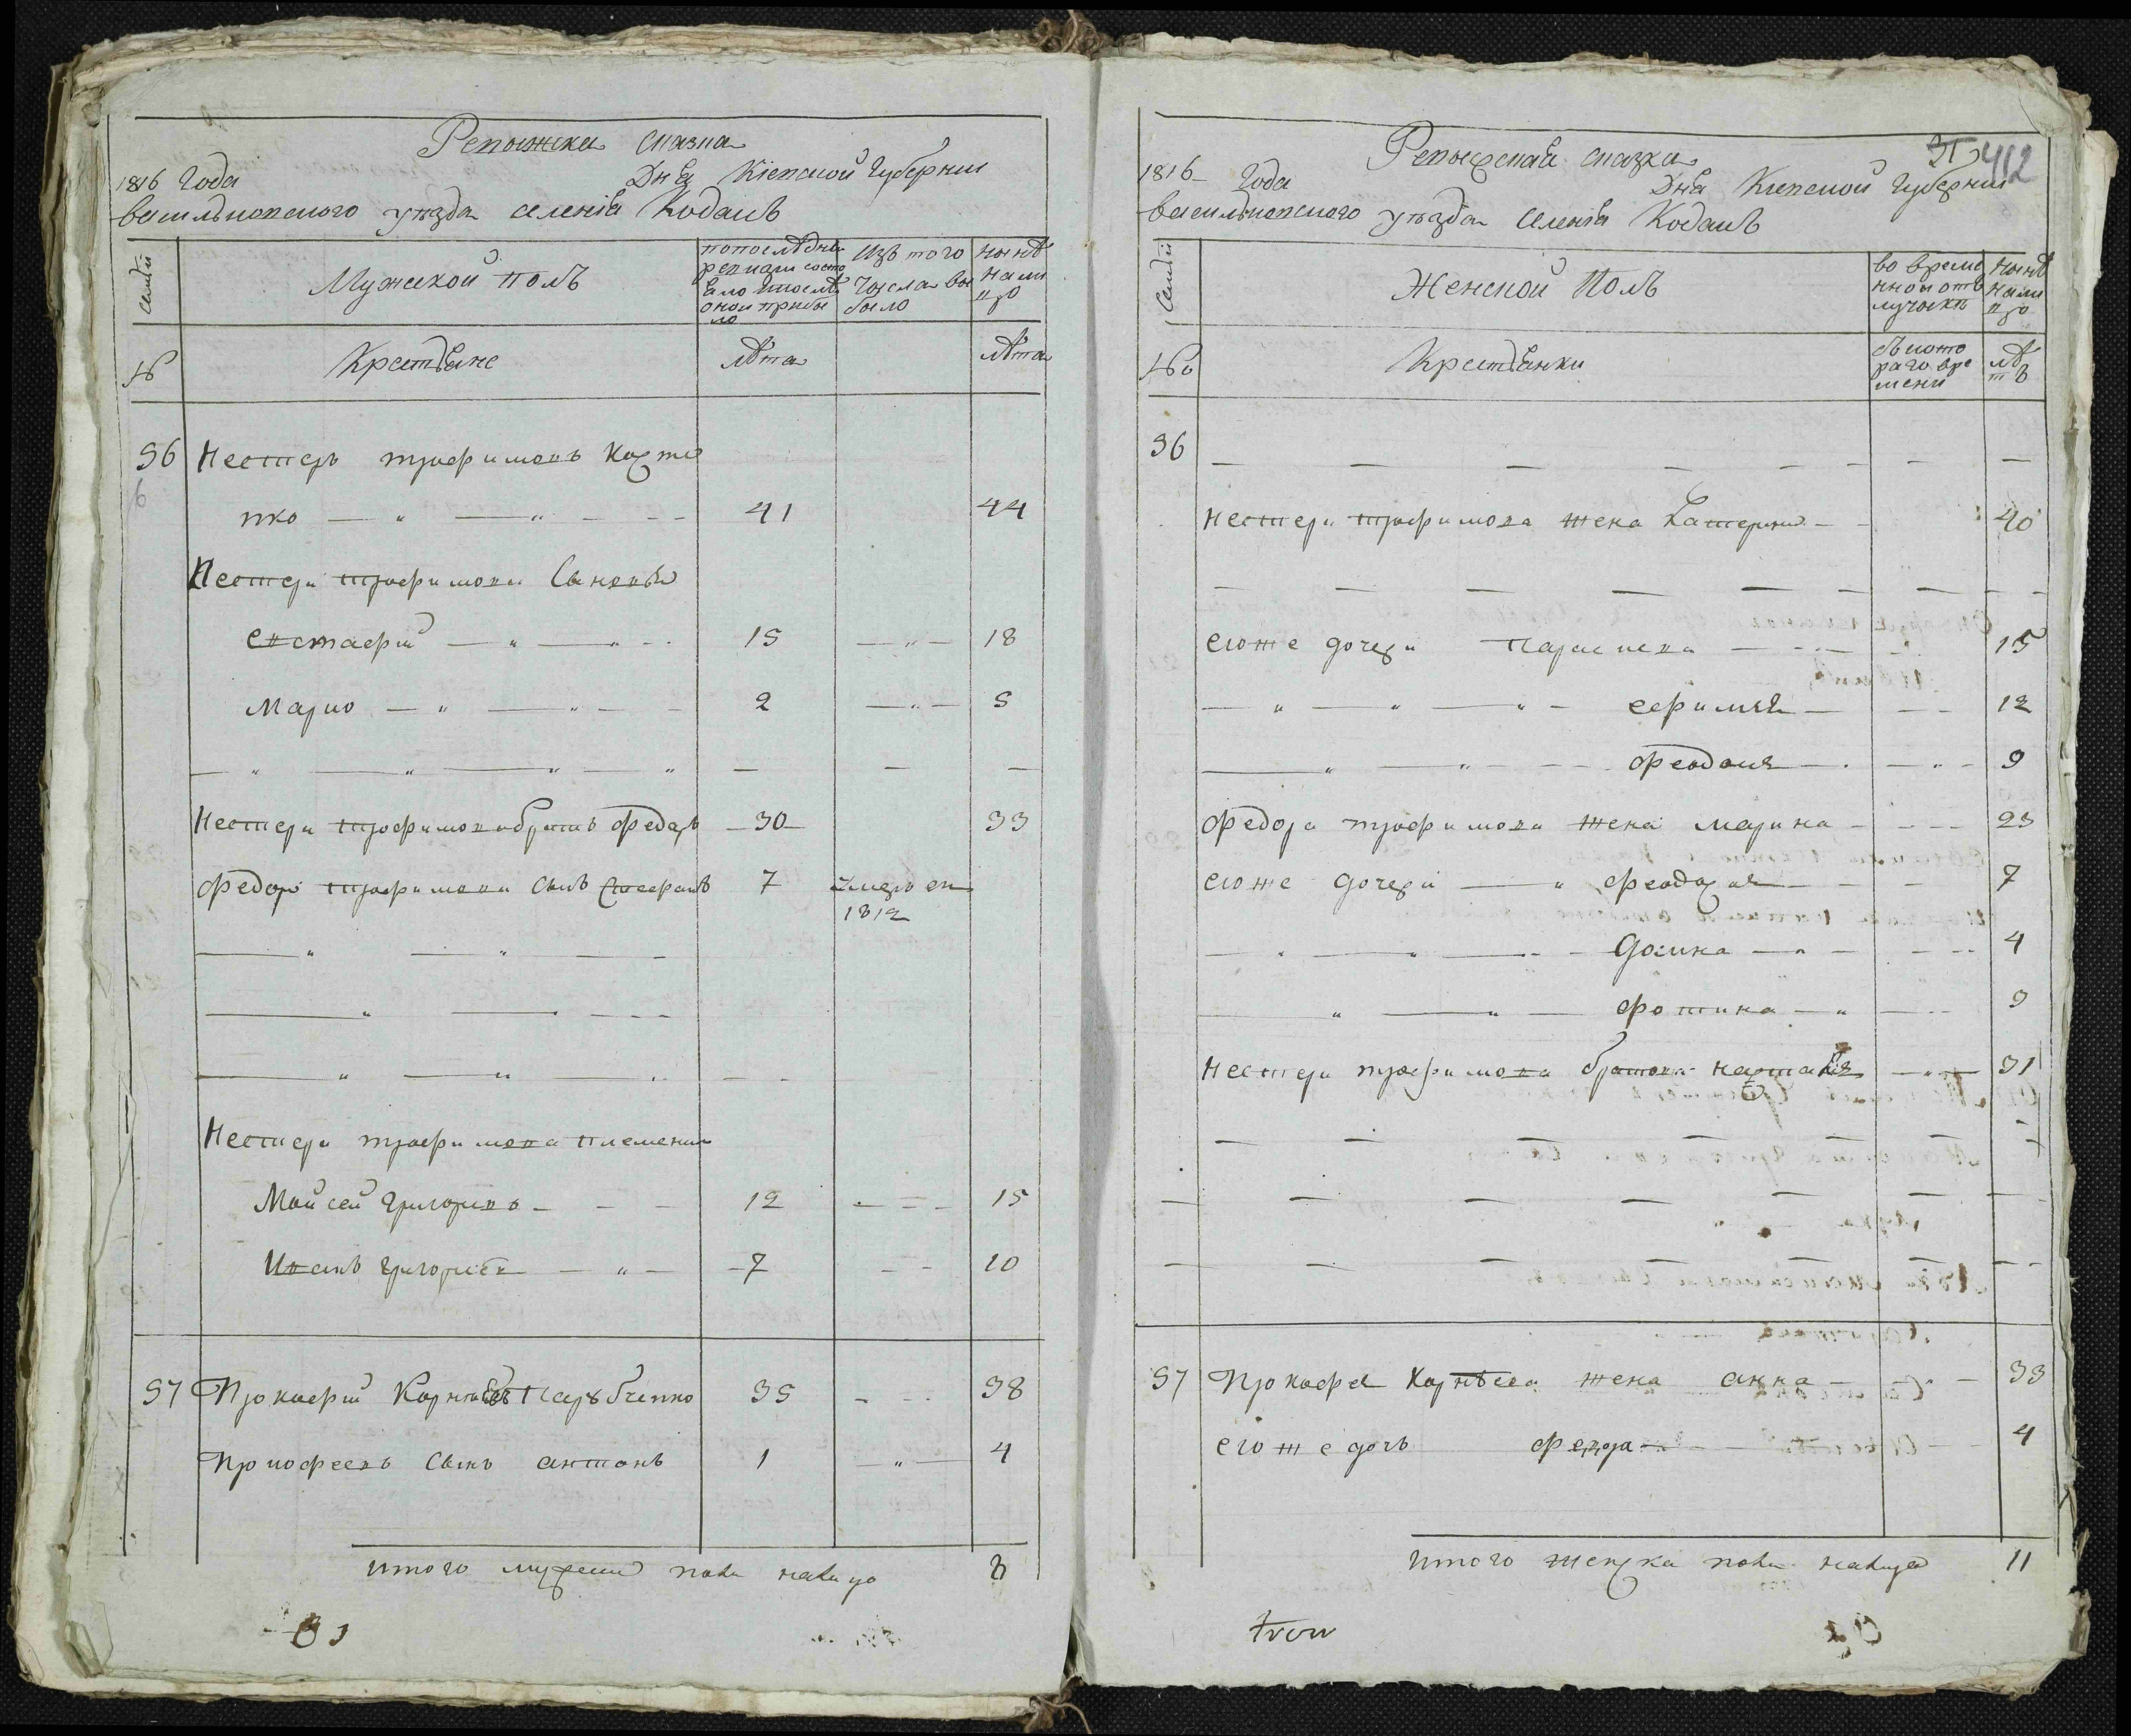 Ревижска сказка
1816 Года Дня Кіевской Губерніи
васильковского уезда селенія Кодакъ
Семьи
Мужеской Полъ
по последней ревизіи состояло и после оной прибыло
Изъ того числа выбыло
Ныне на лицо
№
Крестьяне
лѣта
лѣта
36 Нестеръ трофимовъ Карпе
нко 41 44
Нестера трофимова Сыновья
евстафій 15 18
Марко 2 5
Нестера трофимова братъ Федоръ 30 33
Федора трофимова сынъ Стефанъ 7 умеръ въ
1812
Нестера трофимова племенники
Мойсей Григорьевъ 12 15
Иванъ Григорьевъ 7 10
37 Прокофій Корнѣевъ 35 38
Прокофеевъ Сынъ антонъ 1 4
итого мужеска пола налицо 8
Ревижская сказка
37 412
1816 Года Дня Кіевской Губерніи
васильковского уезда Селенія Кодакъ
Семьи
Женской Полъ
во временной отлучьке
Ныне на лицо
№
Крестьянки
съ которого времени
лѣтъ
36
Нестера трофимова жена Катерина 40
его же дочери Параскева 15
ефимья 12
феодосия 9
Федора трофимова жена марина 23
его же дочери феодосия 7
домка 4
фотина 3
Нестера трофимова братова 31
37 Прокофея Корнѣева жена анна 33
его же дочь феодора 4
итого женска пола налицо 11